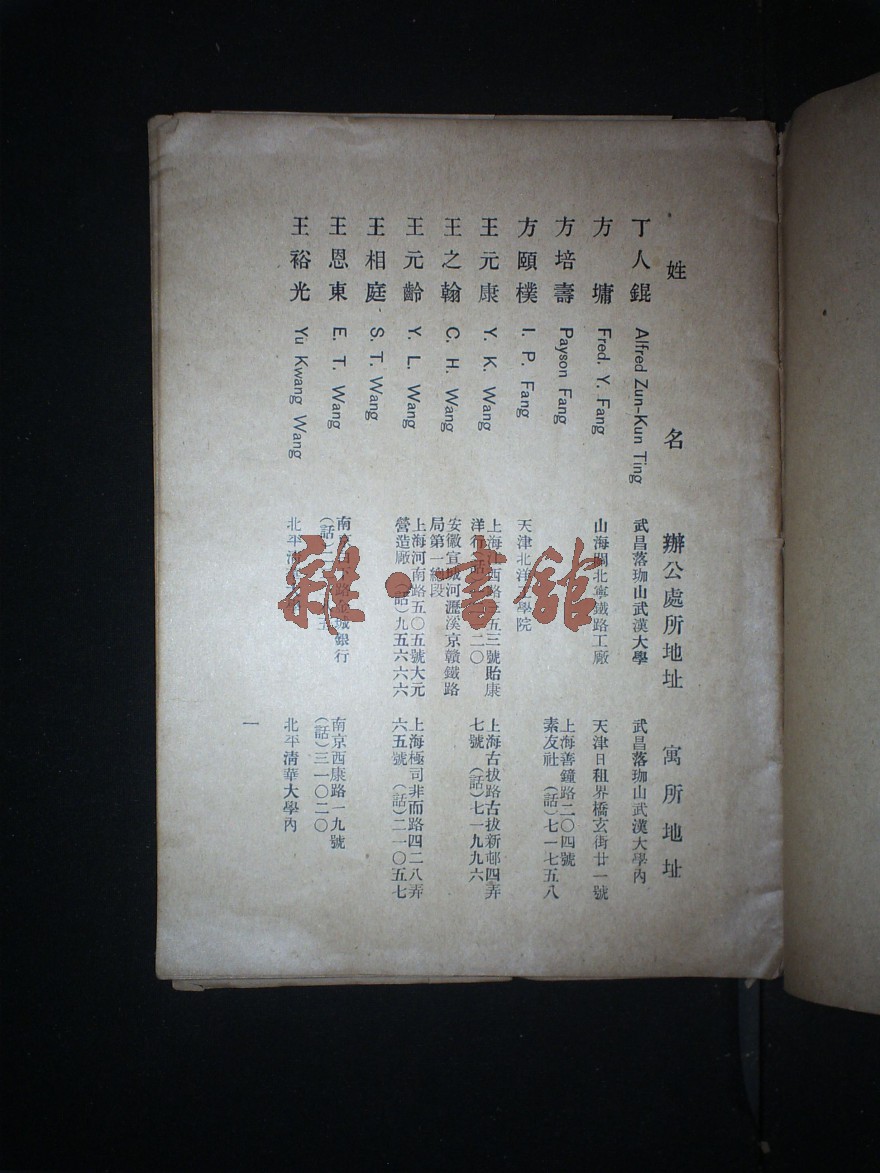 姓名 辦公處所地址 寓所地址
丁人錕 Alfred Zun-Kun Ting 武昌落珈山武漢大學 武昌落珈山武漢大學內
方墉 Fred. Y. Fang 山海關北寧鐵路工廠 天津日租界橋玄街廿一號
方培壽 Payson Fang 上海善鐘路二〇四號
素友社 (話)七一七五八
方頤樸 I. P. Fang 天津北洋 學院
王元康 Y. K. Wang 上海 西路 五三號貽康 上海古拔路古拔新邨四弄
洋行 二〇 七號 (話)七一九九六
王之翰 C. H. Wang 安徽宣城河瀝溪京贛鐵路
局第一總段
王元齡 Y. L. Wang 上海河南路五〇五號大元 上海極司非而路四二八弄
營造廠 (話)九五六六六 六五號 (話)二一〇五七
王相庭 S. T. Wang
王恩東 E. T. Wang 南京 下路 城銀行 南京西康路一九號
(話)二 五 (話)三一〇二〇
王裕光 Yu Kwang Wang 北平清 北平清華大學內
一
雜·書館